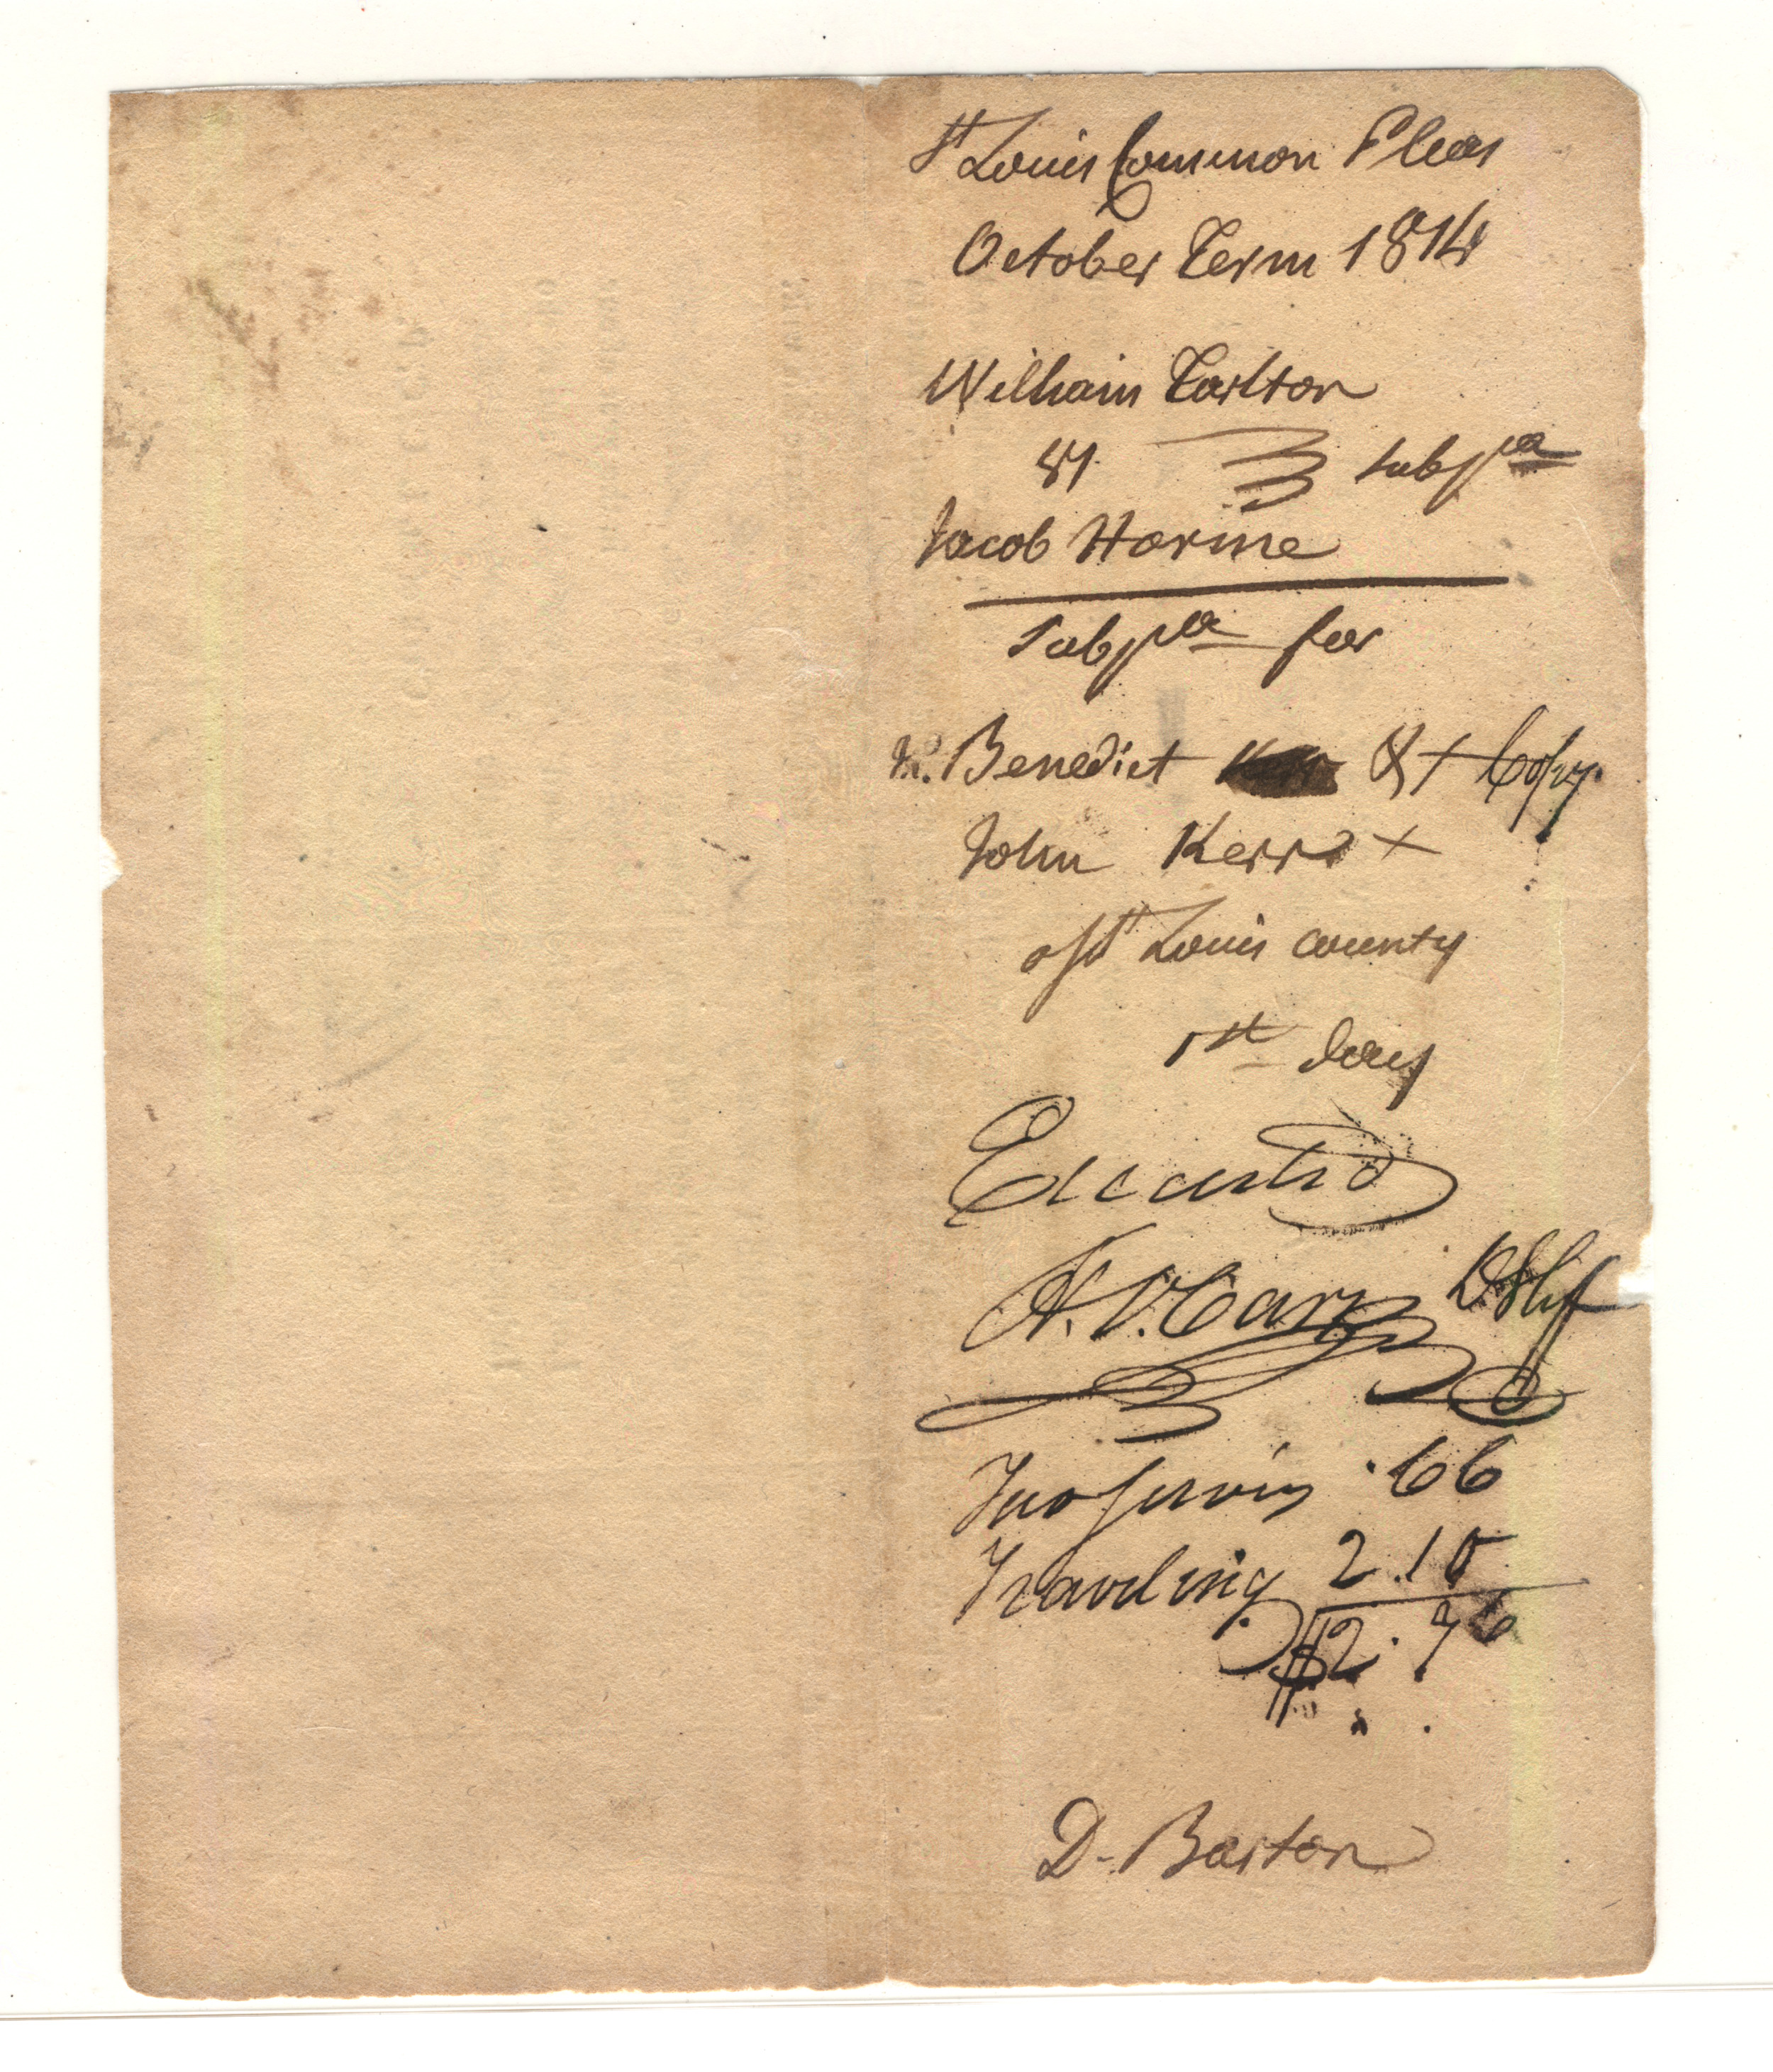 St Louis Common Pleas
October Term 1814
William Tarlton
87. Subpa
Jacob Horine
Subpa for
Benedict & + Copy.
John Kerr +
of St Louis county
1st day
Executed
A. V. Carr D Shff
Two serving .66
Traveling 2.10
$2.76
D. Barton